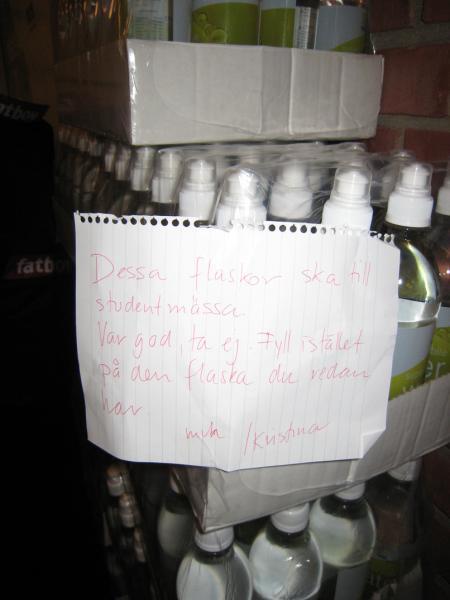 fatboy
fatboy
Dessa flaskor ska till
studentmässa.
Var god, ta ej. Fyll istället
på den flaska du redan
har
mvh /Kristina